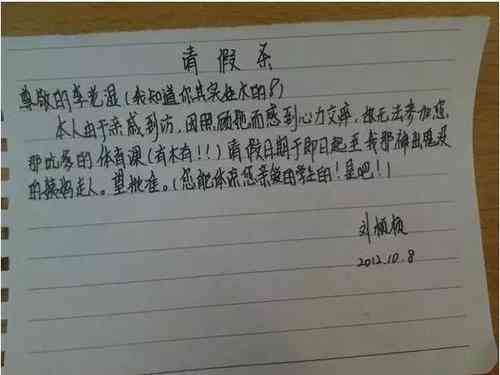 请假条
尊敬的李老湿(我知道你其实姓木的?)
本人由于亲戚到访,因照顾她而感到心力交瘁,故无法参加您
那吃劳的体育课(有木有!!)请假日期于即日起至我那神出鬼没
的姨妈走人。望批准。(您能体谅您亲爱的学生的!是吧!)
刘
2012.10.8